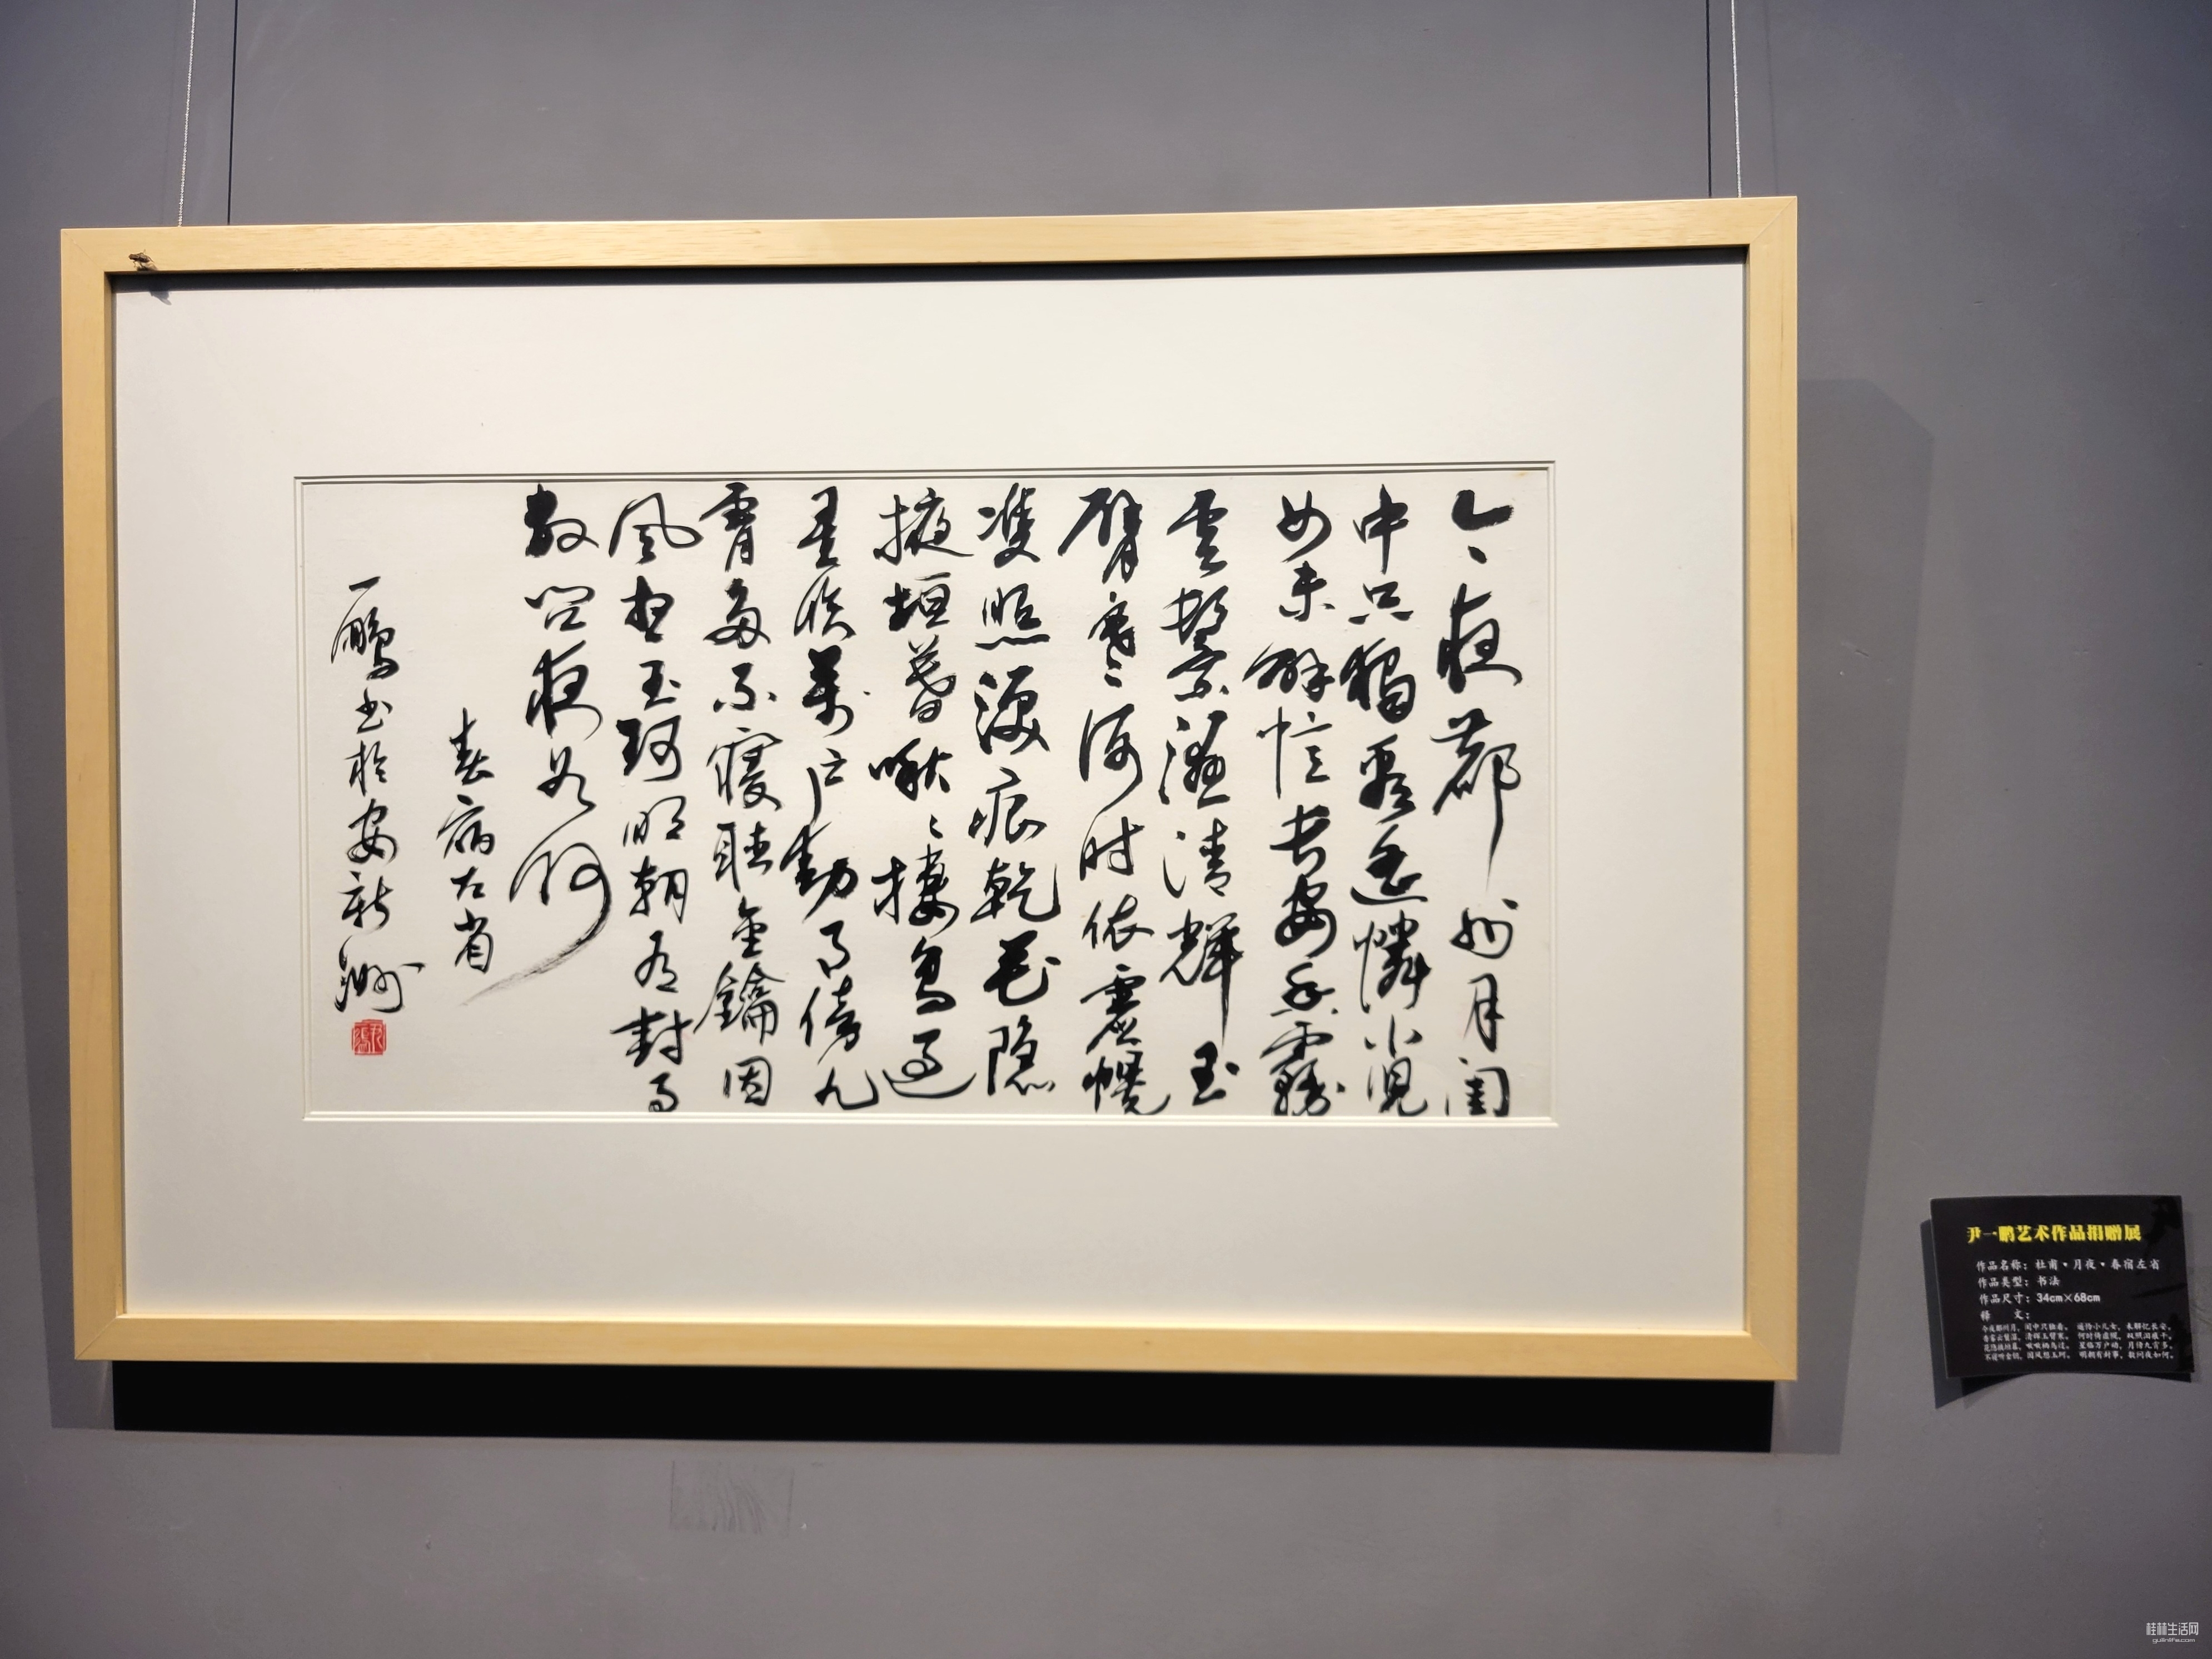 今夜鄜州月闺
中只獨看遥憐小児
女未解忆长安香霧
雲鬟溼清輝玉
臂寒何时依虚幌
雙照淚痕乾花隐
掖垣暮啾々棲鳥過
星临萬户動月傍九
霄多不寝聽金鑰因
風想玉珂明朝有封事
数问夜如何
春宿左省
一鹏书於安新洲
尹一鹏艺术作品捐赠展
作品名称：杜甫·月夜·春宿左省
作品类型：书法
作品尺寸：34cm×68cm
释　文：
今夜鄜州月，闺中只独看。 遥怜小儿女，未解忆长安。
香雾云鬟湿，清辉玉臂寒。 何时倚虚幌，双照泪痕干。
花隐掖垣暮，啾啾栖鸟过。 星临万户动，月傍九霄多。
不寝听金钥，因风想玉珂。 明朝有封事，数问夜如何。
桂林生活网
guilinlife.com